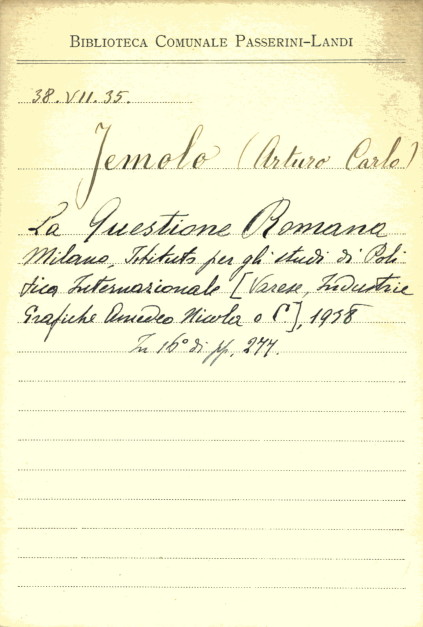 BIBLIOTECA COMUNALE PASSERINI-LANDI
38.VII.35.
Jemolo (Arturo Carlo)
La Questione Romana
Milano, Istituto per gli studi di Poli-
tica Internazionale [Varese, Industrie
Grafiche Amedeo Nicola e C.], 1938
In 16° di pp. 277.